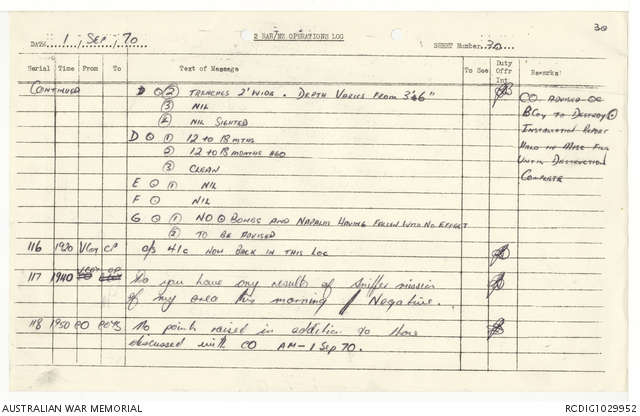 30
2 RAR/NZ OPERATIONS LOG
DATE 1 / SEP / 70
SHEET Number 30
Serial Time From To Text of Message To See Duty Offr Int. Remarks
CONTINUED D ⊙ (2) TRENCHES 2' WIDE. DEPTH VARIES FROM 3'&6"
(3) NIL
(4) NIL SIGHTED
D ⊙ (1) 12 TO 18 MTHS
(2) 12 TO 18 MONTHS AGO
(3) CLEAN
E ⊙ (1) NIL
F ⊙ NIL
G ⊙ (1) NO ⊙ BOMBS AND NAPALM HAVING FALLEN WITH NO EFFECT
(2) TO BE ADVISED
CO ADVISED OC
B COY TO DESTROY ⊙
INSTRUCTION REPORT
HELD IN MISC FILE
UNTIL DESTRUCTION
COMPLETE
116 1920 V COY CP O/S 41C NOW BACK IN THIS LOC
117 1940 V COY CP Do you have any results of Sniffer mission
of my area this morning // Negative.
118 1950 CO COYS No points raised in addition to those
discussed with CO AM - 1 Sep 70.
AUSTRALIAN WAR MEMORIAL
RCDIG1029952